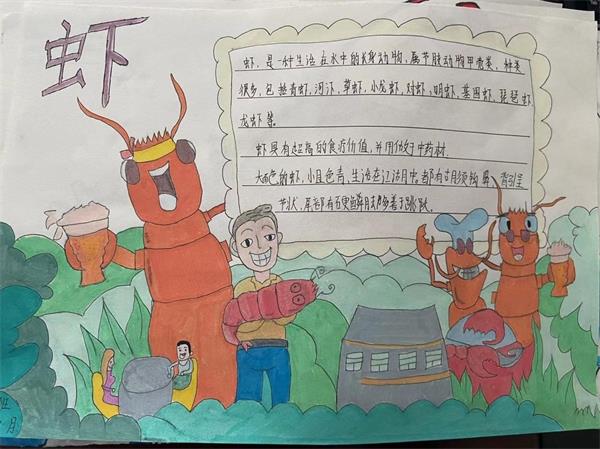 虾
虾，是一种生活在水中的长身动物，属节肢动物甲壳类，种类
很多，包括青虾，河虾，草虾，小龙虾，对虾，明虾，基围虾，琵琶虾
龙虾等。
虾具有超高的食疗价值，并用做于中药材。
色的虾，小且色青，生活在江湖中，都有
节状，尾部有硬鳞，多善于跳跃。
班
月